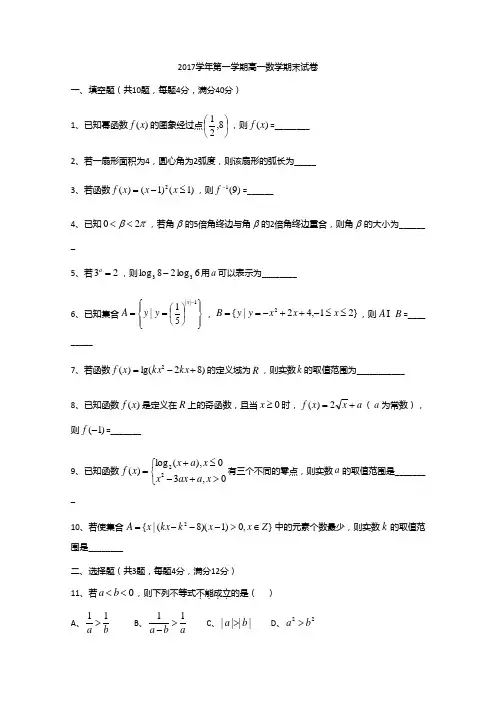 2017学年第一学期高一数学期末试卷
一、填空题（共10题，每题4分，满分40分）
1、已知幂函数 f(x) 的图象经过点 (1/2, 8)，则 f(x) =________
2、若一扇形面积为4，圆心角为2弧度，则该扇形的弧长为_____
3、若函数 f(x) = (x−1)²(x ≤ 1)，则 f⁻¹(9) =______
4、已知 0 < β < 2π，若角 β 的5倍角终边与角 β 的2倍角终边重合，则角 β 的大小为______
_
5、若 3ᵃ = 2，则 log₃ 8 − 2log₃ 6 用 a 可以表示为________
6、已知集合 A = {y | y = (1/5)^(|x|−1)}，B = {y | y = −x² + x + 2 4,−1 ≤ x ≤ 2}，则 A I B =____
_____
7、若函数 f(x) = lg(kx² − 2kx + 8) 的定义域为 R，则实数 k 的取值范围为___________
8、已知函数 f(x) 是定义在 R 上的奇函数，且当 x ≥ 0 时，f(x) = 2√x + a（a 为常数），
则 f(−1) =_______
9、已知函数 f(x) = {log₂(x + a), x ≤ 0; x² − 3ax + a, x > 0 有三个不同的零点，则实数 a 的取值范围是_______
_
10、若使集合 A = {x | (kx − k² − 8)(x − 1) > 0, x ∈ Z} 中的元素个数最少，则实数 k 的取值范
围是________
二、选择题（共3题，每题4分，满分12分）
11、若 a < b < 0，则下列不等式不能成立的是（ ）
A、1/a > 1/b B、1/(a−b) > 1/a C、| a |>| b | D、a² > b²